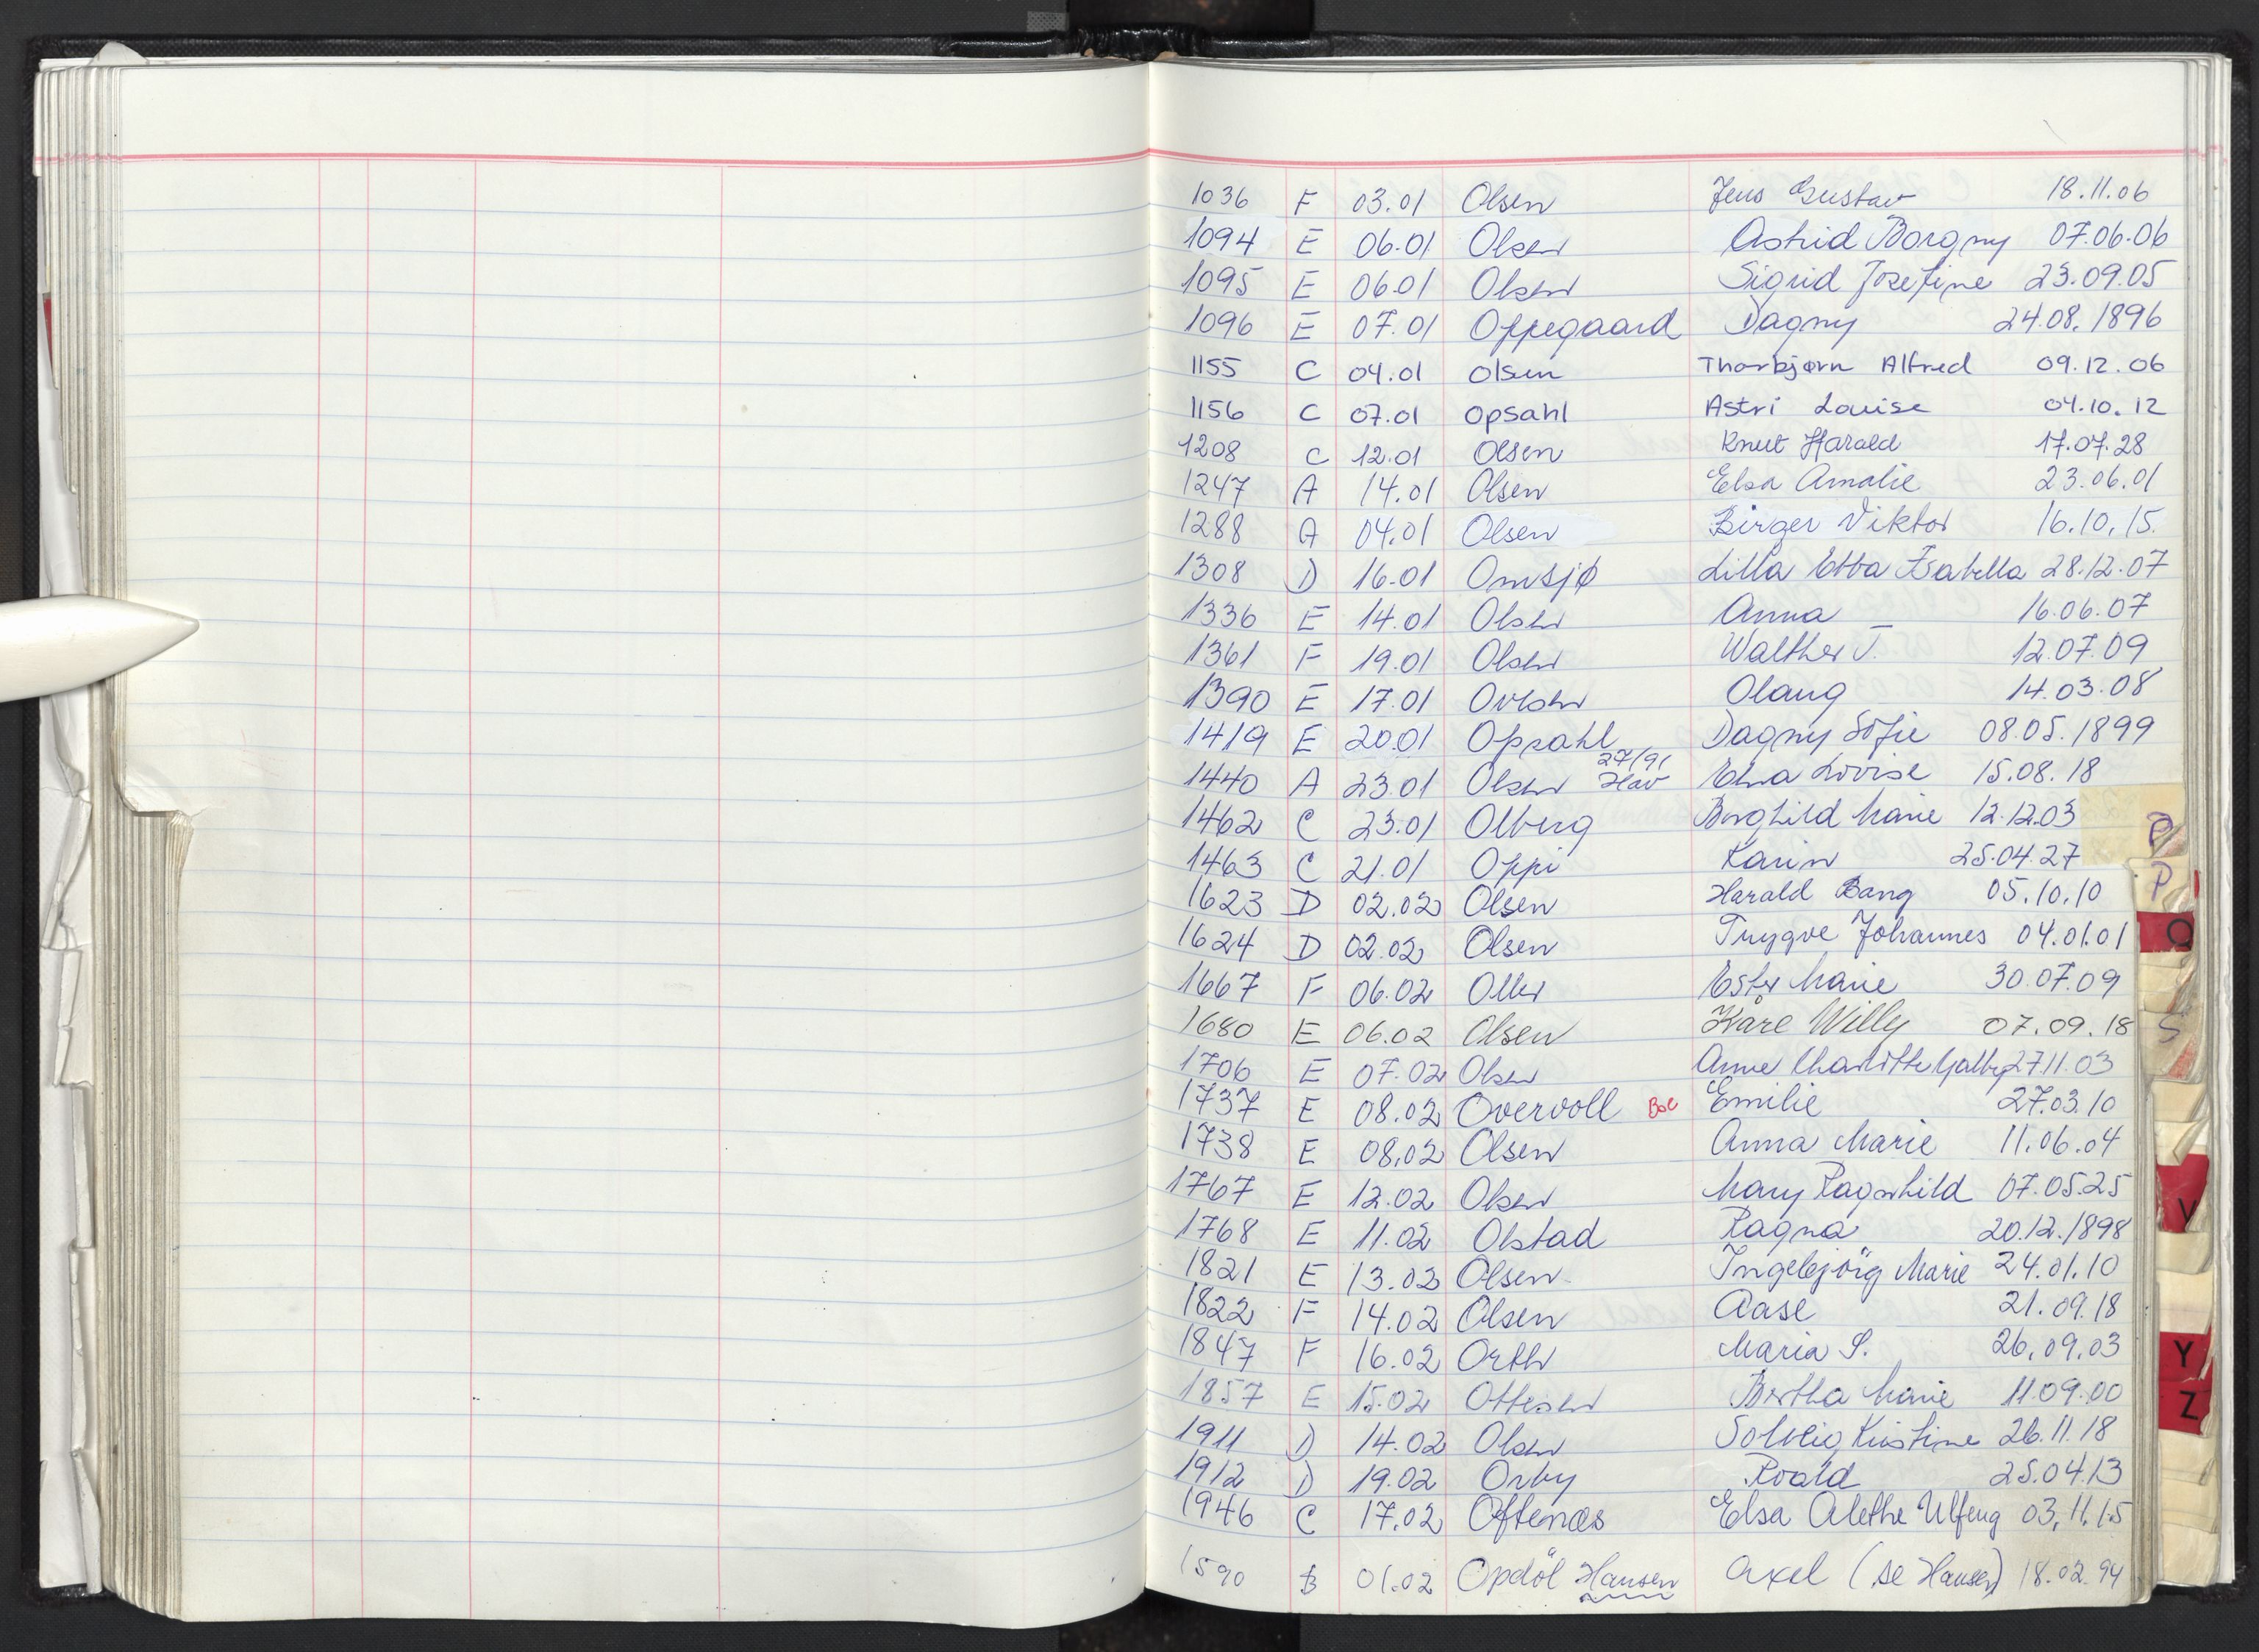 1036 F 03.01 Olsen Jens Gustav 18.11.06
1094 E 06.01 Olsen Astrid Borgny 07.06.06
1095 E 06.01 Olsen Sigrid Josefine 23.09.05
1096 E 07.01 Oppegaard Dagny 24.08.1896
1155 C 04.01 Olsen Thorbjørn Alfred 09.12.06
1156 C 07.01 Opsahl Astri Louise 04.10.12
1208 C 12.01 Olsen Knut Harald 17.07.28
1247 A 14.01 Olsen Elsa Amalie 23.06.01
1288 A 04.01 Olsen Birger Viktor 16.10.15.
1308 D 16.01 Omsjø Lilla Ebba Isabella 28.12.07
1336 E 14.01 Olsen Anna 16.06.07
1361 F 19.01 Olsen Walther J. 12.07.09
1390 E 17.01 Olaug 14.03.08
1419 E 20.01 Opsahl Dagny Sofie 08.05.1899
27/91
1440 A 23.01 Olsen Hav Lovise 15.08.18
1462 C 23.01 Olberg Borghild Marie 12.12.03
1463 C 21.01 Oppi Karin 25.04.27
1623 D 02.02 Olsen Harald Bang 05.10.10
1624 D 02.02 Olsen Trygve Johannes 04.01.01
1667 F 06.02 Ester Marie 30.07.09
1680 E 06.02 Olsen Kåre Willy 07.09.18
1706 E 07.02 Olsen Anne Charlotte 27.11.03
1737 E 08.02 Overvoll Bol Emilie 27.03.10
1738 E 08.02 Olsen Anna Marie 11.06.04
1767 E 12.02 Olsen Mary Ragnhild 07.05.25
1768 E 11.02 Olstad Ragna 20.12.1898
1821 E 13.02 Olsen Ingebjörg Marie 24.01.10
1822 F 14.02 Olsen Aase 21.09.18
1847 F 16.02 Maria S. 26.09.03
1857 E 15.02 Ottesen Bertha Marie 11.09.00
1911 D 14.02 Olsen Solveig Kristine 26.11.18
1912 D 19.02 Orby Roald 25.04.13
1946 C 17.02 Oftenæs Elsa Alethe Ulfeng 03.11.15
1590 B 01.02 Opdöl Hansen Axel (se Hansen) 18.02.94
P
P
Q
S
V
Y
Z